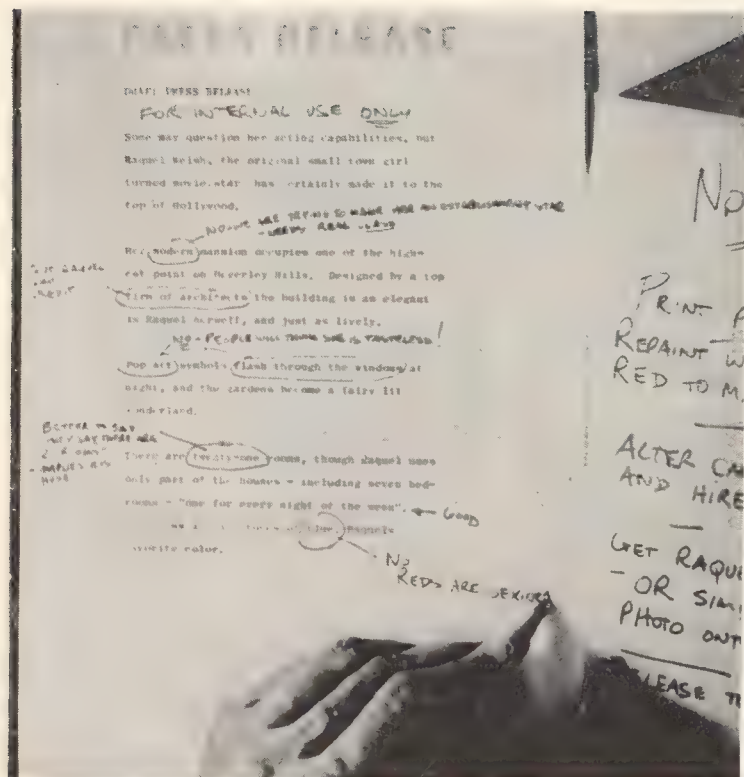 PRESS RELEASE
DRAFT PRESS RELEASE
FOR INTERNAL USE ONLY
Some may question her acting capabilities, but
Raquel Welsh, the original small town girl
turned movie-star has certainly made it to the
top of Hollywood.
NO - WE ARE TRYING TO MAKE HER AN ESTABLISHMENT STAR
REAL
Her modern mansion occupies one of the high-
est point on Beverley Hills. Designed by a top
firm of architects the building is as elegant
as Raquel herself, and just as lively.
NO - PEOPLE WILL THINK SHE IS TASTELESS!
Pop art symbols flash through the windows at
night, and the gardens become a fairy lit
wonderland.
BETTER TO SAY
There are twenty-one rooms, though Raquel uses
only part of the houses - including seven bed-
rooms - "one for every night of the week".
GOOD
blue Raquels
favorite color.
NO
REDS ARE SEXIER
NO
PRINT P
REPAINT W
RED TO M
ALTER CA
AND HIRE
GET RAQUE
- OR SIMI
PHOTO ONT
PLEASE T